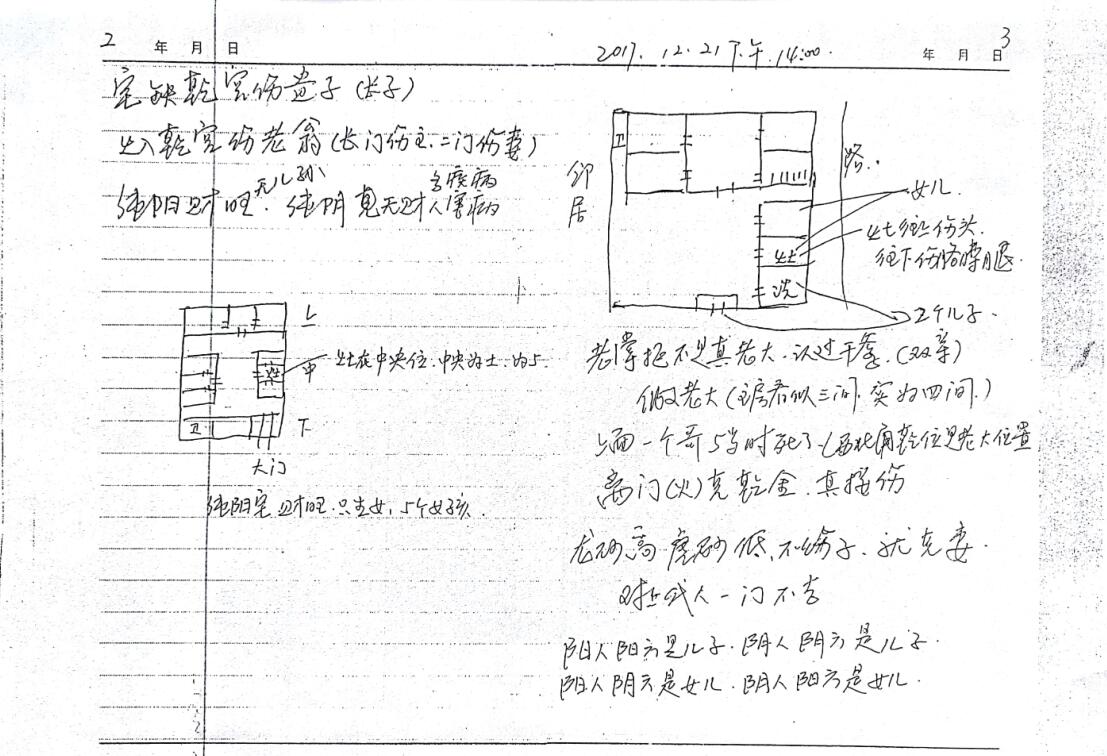 2 年 月 日
宅缺乾宫伤长子(长子)
灶入乾宫伤老翁(长门伤主.二门伤妻)
无儿孙 多疾病
纯阳财旺. 纯阴鬼无财人
上
灶在中央位.中央为土.为5.
中
下
卫
大门
纯阴宅 财旺.只生女,5个女孩.
2017.12.21下午.14:00. 年 月 日 3
卫
邻居
路.
女儿.
灶
灶往上伤头.
往下伤胳膊腿.
洗
2个儿子.
老掌柜不是真老大.认过干爹.(双亲)
假老大(主房看似三间.实为四间.)
上面一个哥 当时死了.(西北角乾位是老大位置
离门(火)克乾金.直接伤
龙砂高.虎砂低.不伤子.就克妻.
一门不吉
阳人阳方是儿子.阴人阴方是儿子.
阳人阴方是女儿.阴人阳方是女儿.